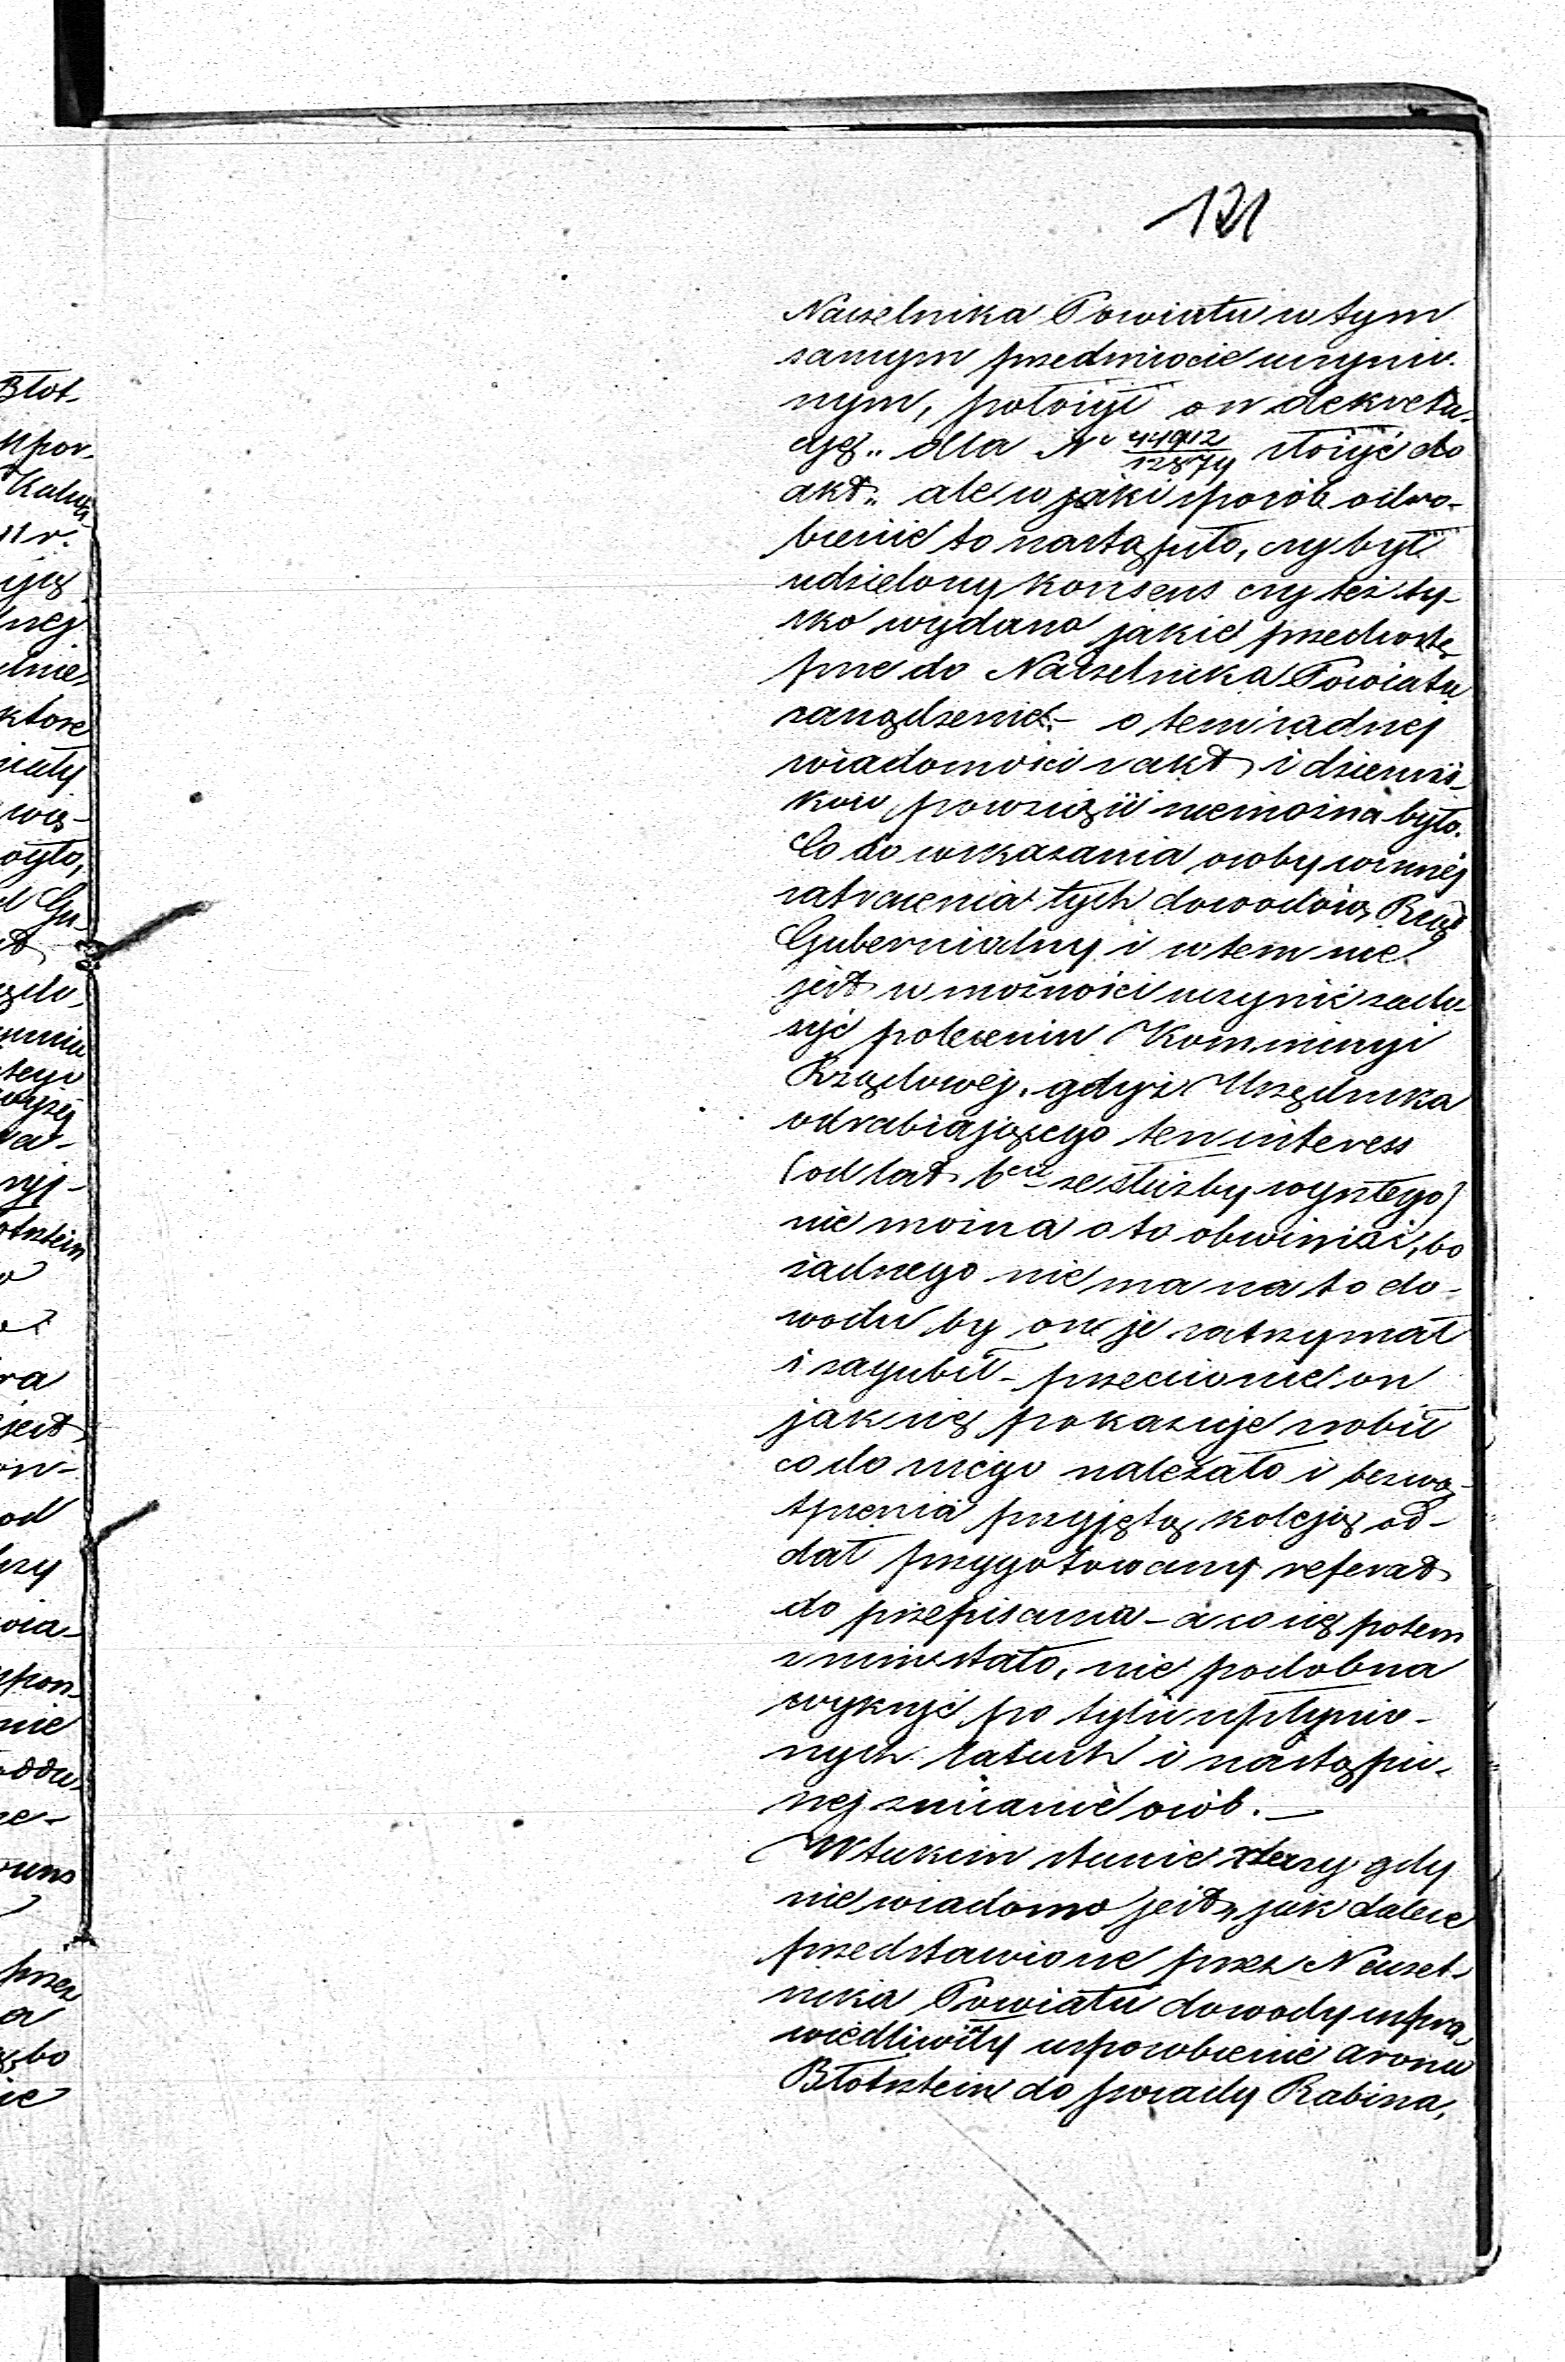 121
Naczelnika Powiatu w tym
samym przedmiocie uczynio-
nym, położył on dekreta-
cyę „dla No 44912/12874 złożyć do
akt„ ale w jaki sposób odro-
bienie to nastąpiło, czy był
udzielony konsens czy też ty-
lko wydano jakie przedwstę
pne do Naczelnika Powiatu
zarządzenie – o tem żadnej
wiadomości z akt i dzienni-
ków powziąść niemożna było.
Co do wskazania osoby winnej
zatracenia tych dowodów, Rząd
Gubernialny i w tem nie
jest w możności uczynić zado-
syć poleceniu Kommissyi
Rządowej, gdyż Urzędnika
odrabiającego ten interess
(od lat 6ciu ze służby wyszłego)
nie można o to obwiniać, bo
żadnego nie ma na to do-
wodu by on je zatrzymał
i zagubił – przeciwnie on
jak się pokazuje zrobił
co do niego należało i bezwą-
tpienia przyjętą koleją od-
dał przygotowany referat
do przepisania – a co się potem
z nim stało, nie podobna
wykryć po tylu upłynio-
nych latach i nastąpio-
nej zmianie osób. –
W takim stanie rzeczy gdy
nie wiadomo jest, jak dalece
przedstawione przez Naczel-
nika Powiatu dowody uspra-
wiedliwiały usposobienie Arona
Błotsztein do posady Rabina,
Błot-
które
wią-
było,
Gu-
tego
wyżej
otsztein
jest
od
nie
przez
bo